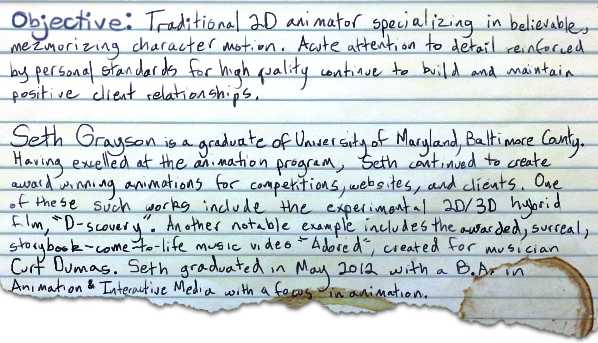 Objective: Traditional 2D animator specializing in believable,
mezmorizing character motion. Acute attention to detail reinforced
by personal standards for high quality continue to build and maintain
positive client relationships.
Seth Grayson is a graduate of University of Maryland, Baltimore County.
Having excelled at the animation program, Seth continued to create
award winning animations for competitions, websites, and clients. One
of these such works include the experimental 2D/3D hybrid
film, "D-scovery". Another notable example includes the awarded, surreal,
storybook-come-to-life music video "Adored", created for musician
Curt Dumas. Seth graduated in May 2012 with a B.A. in
Animation & Interactive Media with a focus in animation.